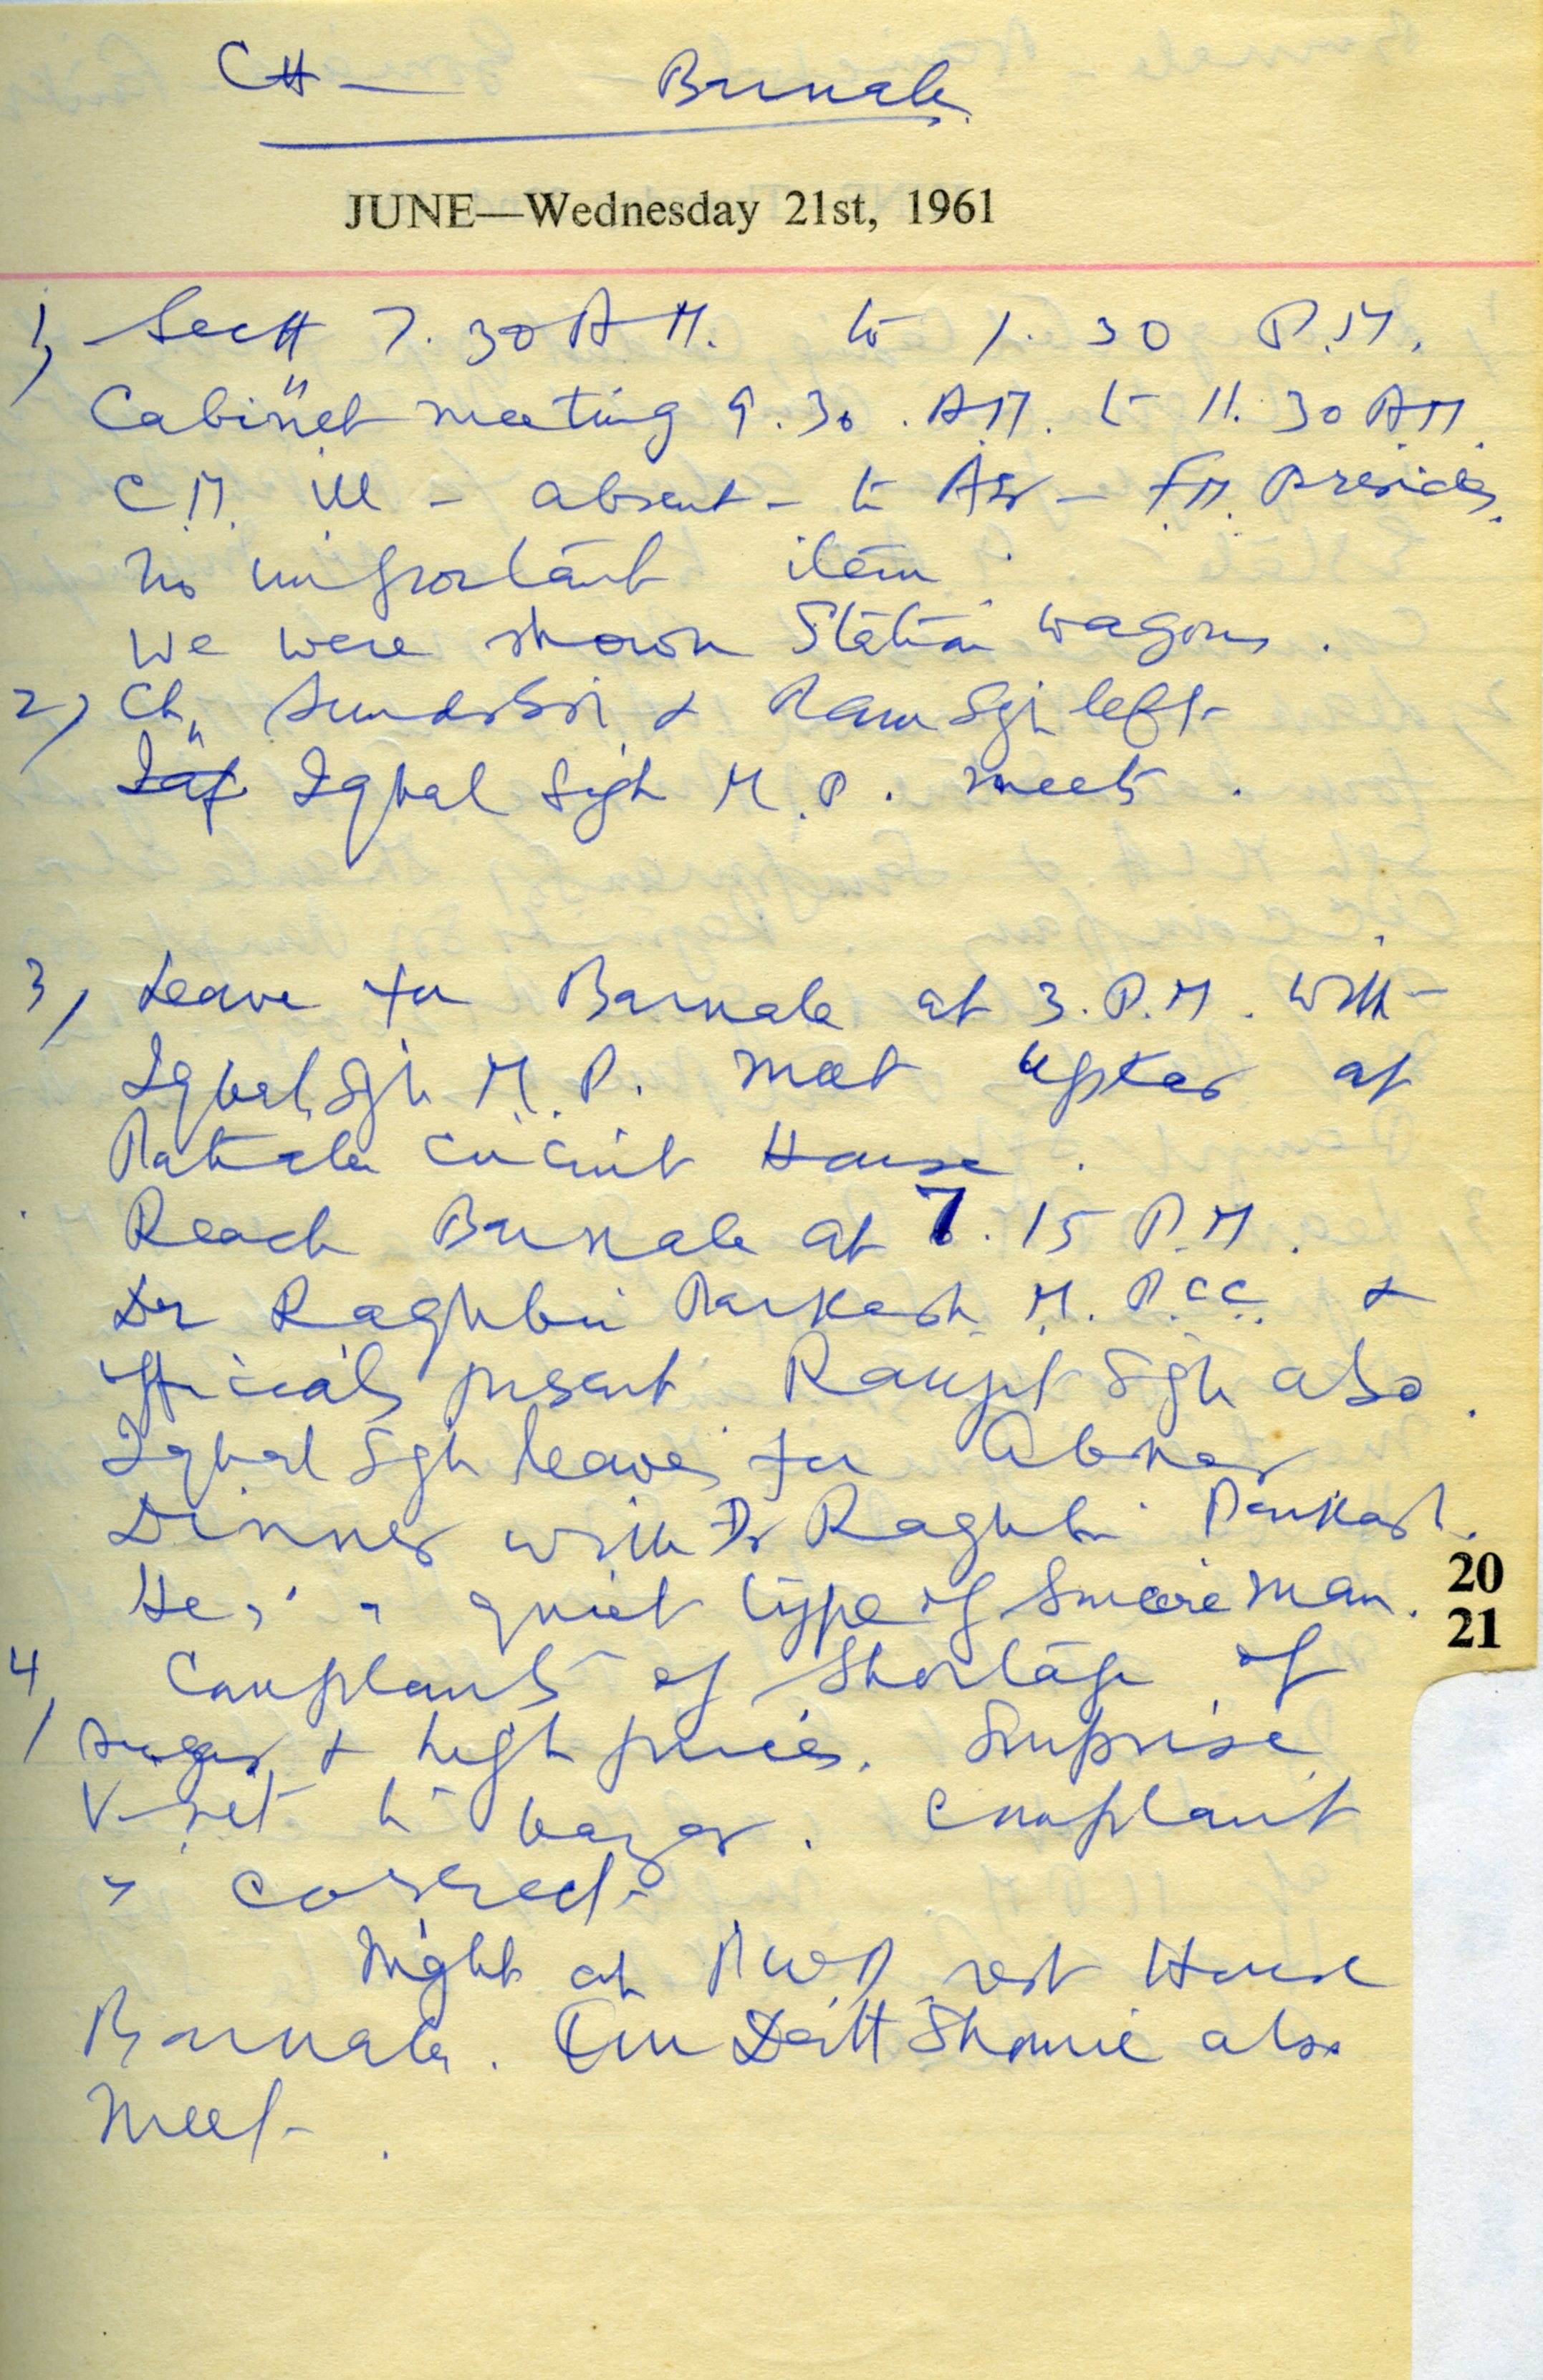 CH — Barnala
JUNE—Wednesday 21st, 1961
1, Sectt 7.30 A.M. to 1.30 P.M.
Cabinet meeting 9.30. A.M. to 11.30 A.M.
C.M. ill - absent - to Asr - F.M. presides.
No important item.
We were shown Station wagons.
2, Ch. Sunder Sgh & Ram Sgh left
Iqbal Sigh M.P. meets.
3, Leave for Barnala at 3. P.M. with
Iqbal Sgh M.P. meet at
Patiala Circuit House.
Reach Barnala at 7.15 P.M.
Dr Raghbir Parkash M.P.C.C. &
officials present Ranjit Sgh also.
Iqbal Sgh leaves for Abohar
Dinner with Dr Raghbir Parkash.
He is a quiet type of sincere man.
20
21
4, Complaints of shortage of
sugar & high prices. Surprise
Visit to bazar. Complaint
is correct
Night at P.W.D. rest House
Barnala. Om Datt Sharma also
meet.